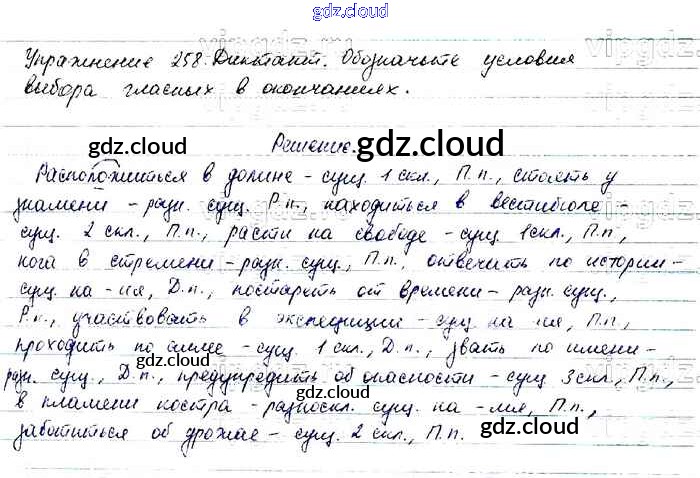 gdz.cloud
Упражнение 258. Диктант. Обозначьте условия
выбора гласных в окончаниях.
gdz.cloud
Решение. gdz.cloud
gdz.cloud
Расположиться в долине - сущ. 1 скл., П.п., стоять у
знамени - разн. сущ. Р.п., находиться в вестибюле -
сущ. 2 скл., П.п., расти на свободе - сущ. 1 скл., П.п.,
нога в стремени - разн. сущ., П.п., отвечать по истории -
сущ. на -ия, Д.п., постареть от времени - разн. сущ.,
Р.п., участвовать в экспедиции - сущ. на -ия, П.п.,
проходить по аллее - сущ. 1 скл., Д.п., звать по имени -
gdz.cloud gdz.cloud
разн. сущ., Д.п., предупредить об опасности - сущ. 3 скл., П.п.,
в пламени костра - разноскл. сущ. на -мя, П.п.,
gdz.cloud gdz.cloud
заботиться об урожае - сущ. 2 скл., П.п.